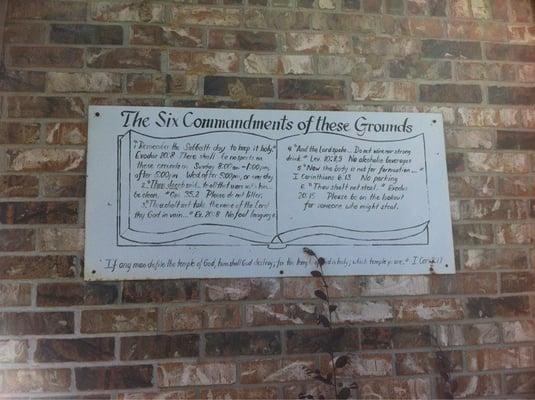 The Six Commandments of these Grounds
1 "Remember the Sabbath day to keep it holy."
Exodus 20:8 There shall be no sports on
these grounds on Sunday 8:00am - 1:00pm,
after 5:00pm Wed after 5:00pm, or any day
be clean." Gen. 35:2 Please do not litter.
3 "Thou shalt not take the name of the Lord
thy God in vain..." Ex. 20:8 No foul language.
4 "And the Lord spake... Do not wine nor strong
drink." Lev. 10:8,9 No alcoholic beverages
5 "Now the body is not for fornication..."
I Corinthians 6:13 No parking
6 "Thou shalt not steal." Exodus
20:15 Please be on the lookout
for someone who might steal.
"If any man defile the temple of God, him shall God destroy; for the temple of God is holy; which temple ye are." I Cor.